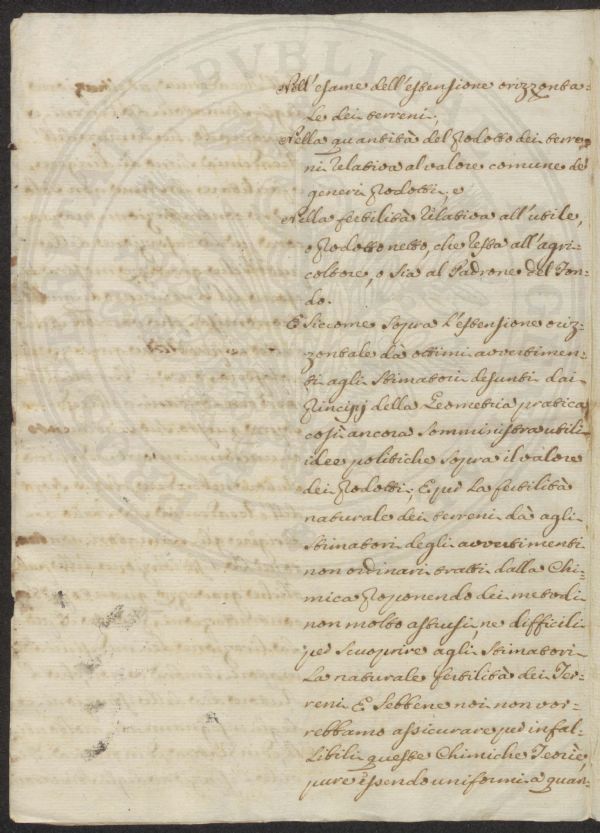 Nell'esame dell'estensione orizzonta-
le dei terreni;
Nella quantità del Prodotto dei terre-
ni relativa al valore comune de
generi Prodotti, e
Nella fertilità relativa all'utile,
o Prodotto netto, che resta all'agri-
coltore, o sia al Padrone del Fon-
do.
E siccome sopra l'estensione oriz-
zontale dà ottimi avvertimen-
ti agli Stimatori desunti dai
Principj della Geometria pratica
così ancora somministra utili
idee politiche sopra il valore
dei Prodotti; E per la fertilità
naturale dei terreni dà agli
Stimatori degli avvertimenti
non ordinari tratti dalla Chi-
mica proponendo dei metodi
non molto astrusi, ne difficili
per scuoprire agli Stimatori
la naturale fertilità dei Ter-
reni. E sebbene noi non vor-
rebbamo assicurare per infal-
libili queste Chimiche Teorie,
pure essendo uniformi a quan-
PVBLICA